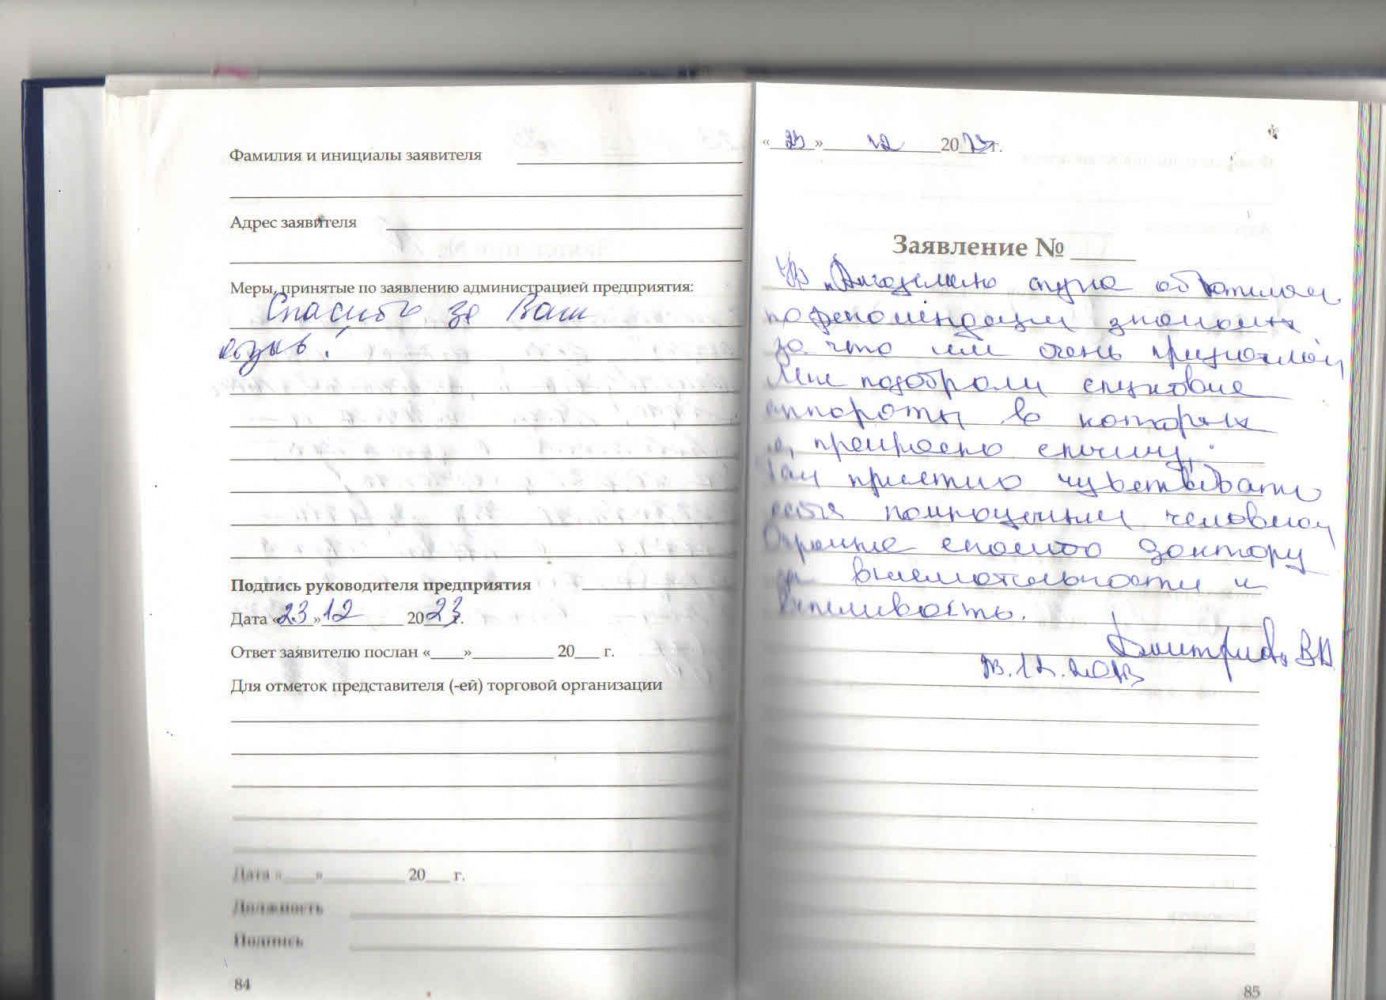 Фамилия и инициалы заявителя
Адрес заявителя
Меры, принятые по заявлению администрацией предприятия:
Спасибо за Ваш
отзыв!
Подпись руководителя предприятия
Дата «23» 12 2023г.
Ответ заявителю послан «___»__________ 20___ г.
Для отметок представителя (-ей) торговой организации
Дата «___»__________ 20___ г.
Должность
Подпись
84
«23» 12 2023г.
Заявление №
слуха обратилась
по рекомендации знакомых
за что им очень
Мне подобрали слуховые
аппараты в которых
я прекрасно слышу.
Так приятно чувствовать
себя полноценным человеком
Огромное спасибо доктору
за внимательность и
вежливость.
Дмитриева ВА
23.12.2023
85